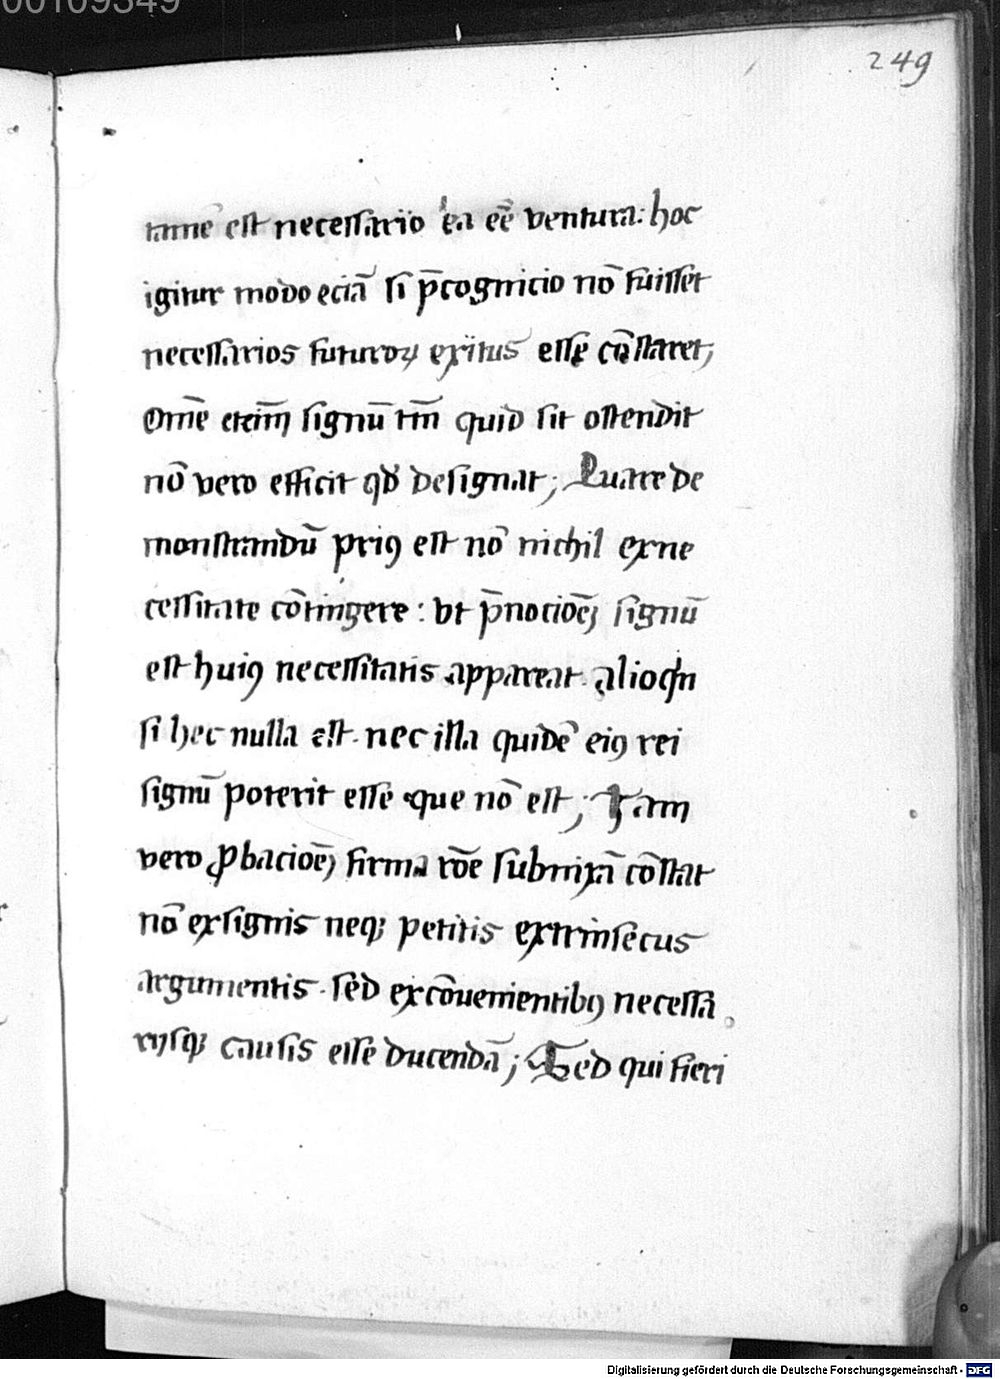 00109349
249
tamē est necessario ea eē ventura: hoc
igitur modo eciā si p̄cognicio nō fuisset
necessarios futuroꝝ exitus esse cōstaret;
Om̄e eteīm signū tm̄ quid sit ostendit
nō vero efficit qd̓ designat; Quare de
monstrandū priꝯ est nō nichil ex ne
cessitate cōtingere: vt p̄nocioēȝ signū
est huiꝯ necessitatis appareat. alioqn
si hec nulla est. nec illa quidē eiꝯ rei
signū poterit esse que nō est; Jam
vero ꝓbacioēȝ firma rōe subnixā cōstat
nō ex signis neqȝ petitis extrinsecus
argumentis. sed ex cōuenientibꝯ necessa
rijsqȝ causis esse ducendā; Sed qui fieri
Digitalisierung gefördert durch die Deutsche Forschungsgemeinschaft - DFG